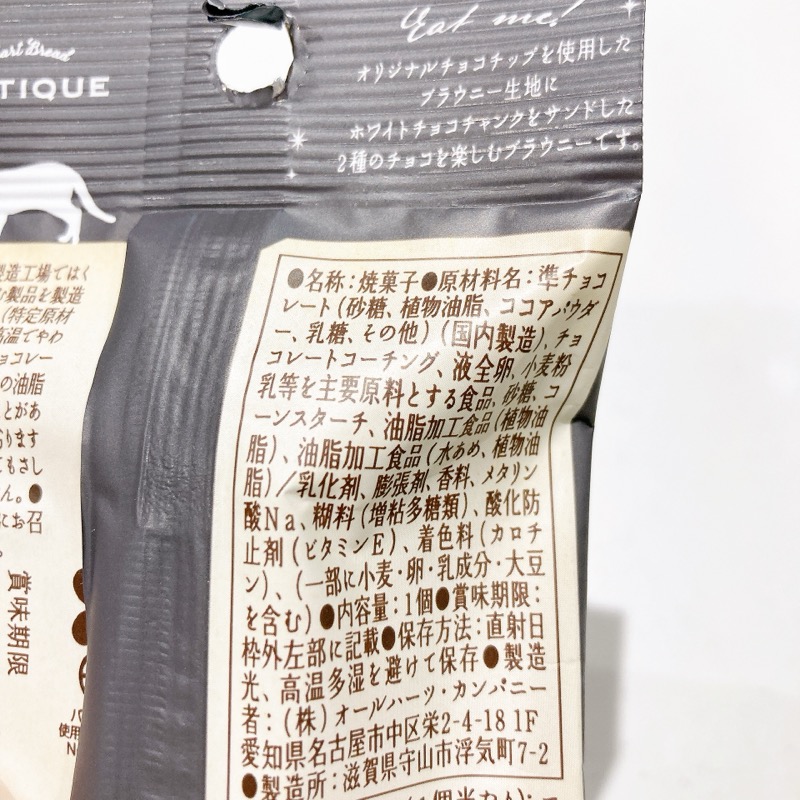 Eat me!
オリジナルチョコチップを使用した
ブラウニー生地に
ホワイトチョコチャンクをサンドした
2種のチョコを楽しむブラウニーです。
art Bread
TIQUE
製造工場ではく
製品を製造
(特定原材
高温でやわ
ョコレー
の油脂
とがあ
ります
てもさし
ん。●
にお召
。
賞味期限
●名称:焼菓子●原材料名:準チョコ
レート(砂糖、植物油脂、ココアパウダ
ー、乳糖、その他)(国内製造)、チョ
コレートコーチング、液全卵、小麦粉
乳等を主要原料とする食品、砂糖、コ
ーンスターチ、油脂加工食品(植物油
脂)、油脂加工食品(水あめ、植物油
脂)/乳化剤、膨張剤、香料、メタリン
酸Na、糊料(増粘多糖類)、酸化防
止剤(ビタミンE)、着色料(カロチ
ン)、(一部に小麦・卵・乳成分・大豆
を含む)●内容量:1個●賞味期限:
枠外左部に記載●保存方法:直射日
光、高温多湿を避けて保存●製造
者:(株)オールハーツ・カンパニー
愛知県名古屋市中区栄2-4-18 1F
●製造所:滋賀県守山市浮気町7-2